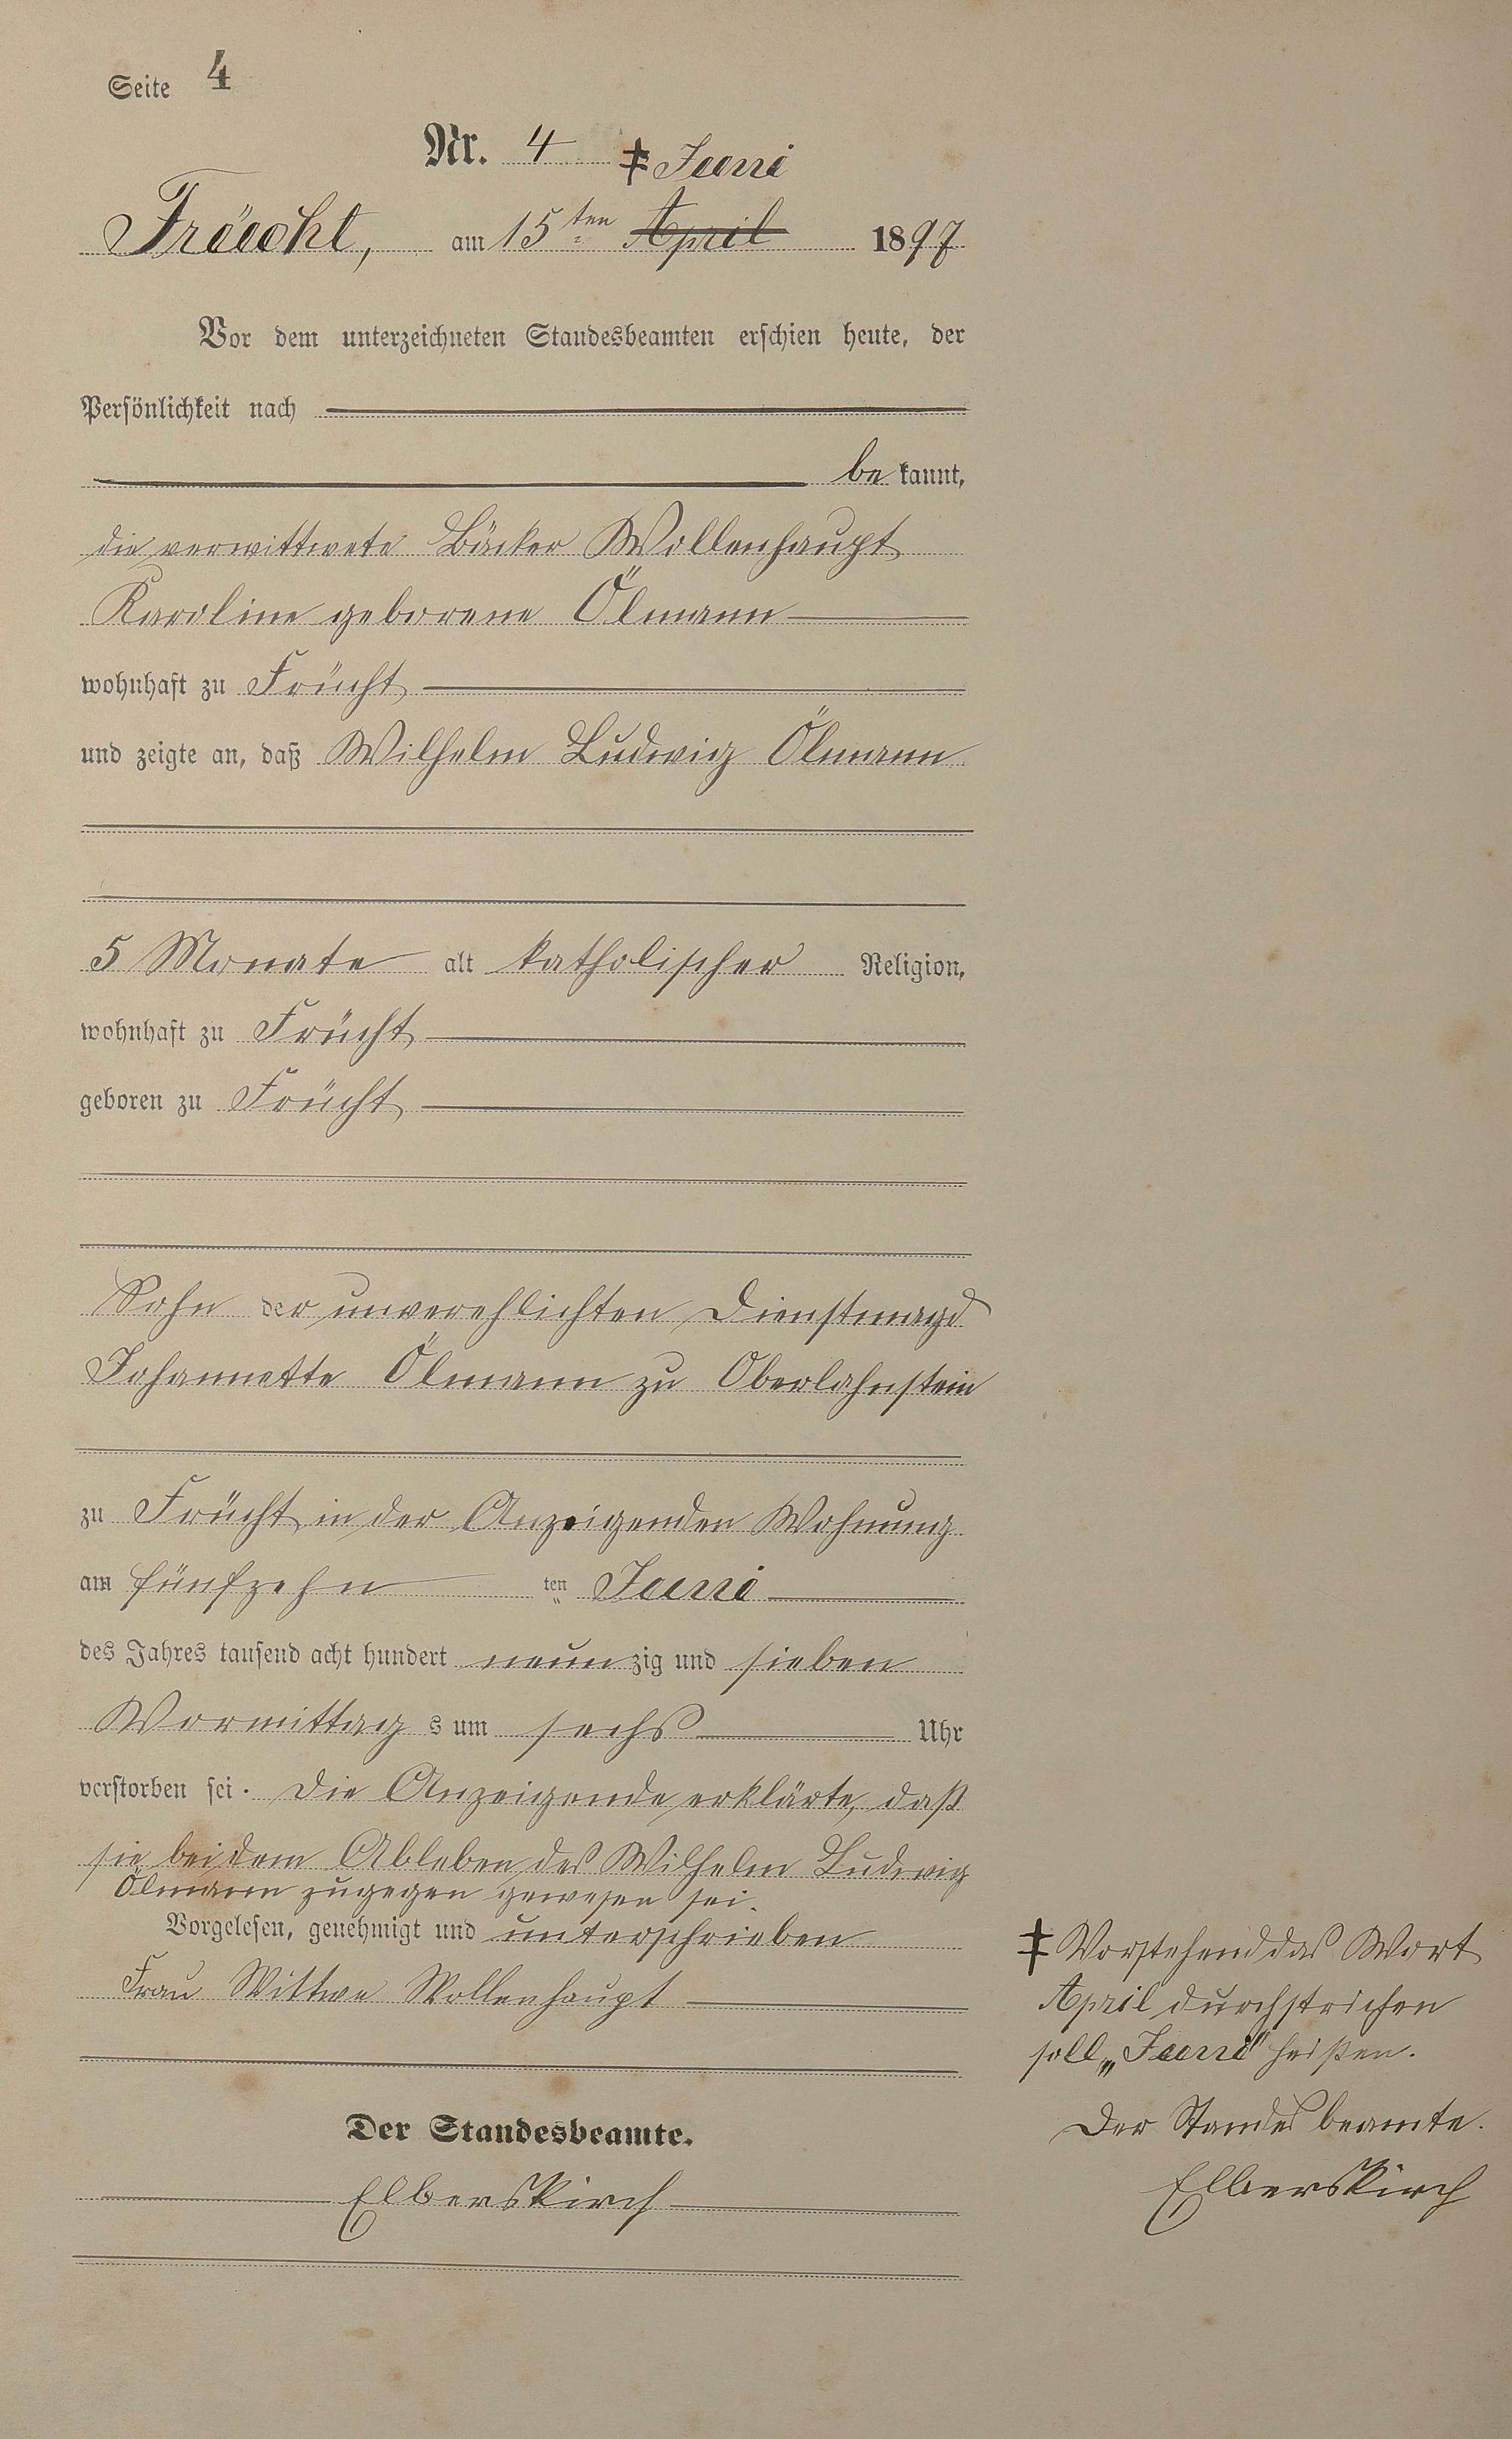 Seite 4
Nr. 4 ‡ Juni
Früecht, am 15ten April 1897
Vor dem unterzeichneten Standesbeamten erschien heute, der
Persönlichkeit nach
be kannt,
die verwittwete Bäcker Wollenhaupt
Karoline geborene Ölmann
wohnhaft zu Frücht
und zeigte an, daß Wilhelm Ludwig Ölmann
5 Monate alt katholischer Religion,
wohnhaft zu Frücht
geboren zu Frücht
Sohn der unverehlichten Dienstmagd
Johannette Ölmann zu Oberlahnstein
zu Frücht in der Anzeigenden Wohnung
am fünfzehn ten Juni
des Jahres tausend acht hundert neun zig und sieben
Vormittag s um sechs Uhr
verstorben sei. Die Anzeigende erklärte, daß
sie bei dem Ableben des Wilhelm Ludwig
Ölmann zugegen gewesen sei.
Vorgelesen, genehmigt und unterschrieben
Frau Wittwe Wollenhaupt
Der Standesbeamte.
Elberskirch
‡ Vorstehend das Wort
April durchstrichen
soll „Juni" heißen.
Der Standesbeamte.
Elberskirch